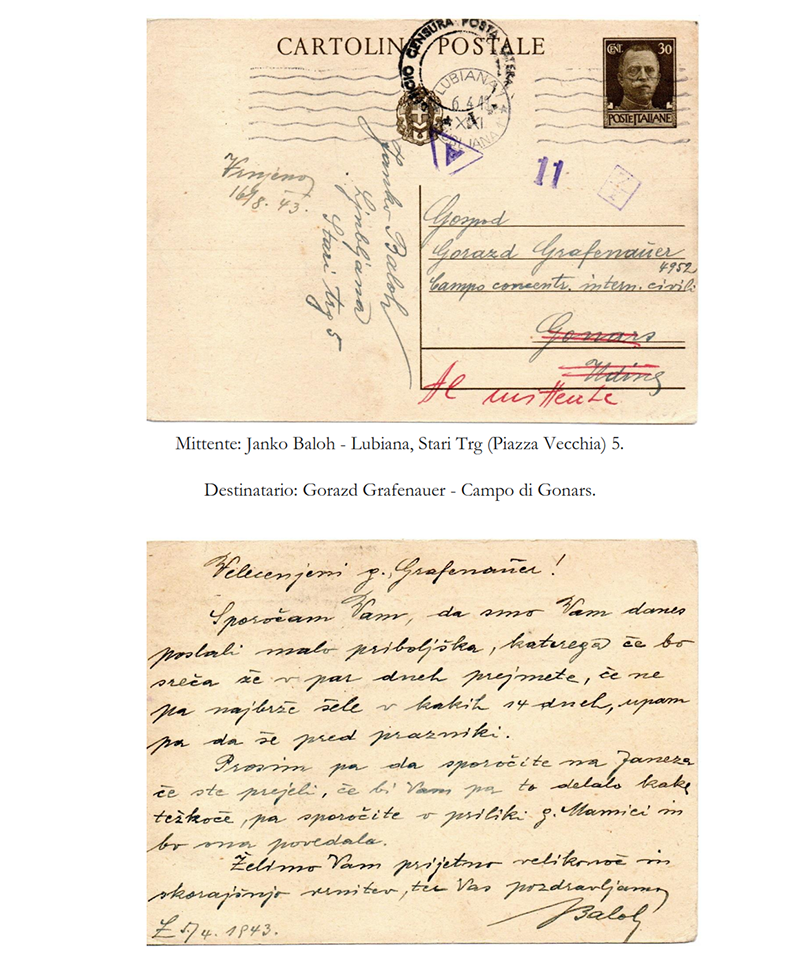 CARTOLINA POSTALE
CENT. 30
POSTE ITALIANE
CENSURA POSTA
LUBIANA
6.4.43
XXI
LJUBLJANA
A
11
Vrnjeno
16/8. 43.
Janko Baloh
Ljubljana
Stari trg 5
Gospod
Gorazd Grafenauer
4952
Campo concentr. intern. civili
Gonars
Udine
Al mittente
Mittente: Janko Baloh - Lubiana, Stari Trg (Piazza Vecchia) 5.
Destinatario: Gorazd Grafenauer - Campo di Gonars.
Velecenjeni g. Grafenauer!
Sporočam Vam, da smo Vam danes
poslali malo priboljška, katerega če bo
sreča že v par dneh prejmete, če ne
pa najbrže šele v kakih 14 dneh, upam
pa da še pred prazniki.
Prosim pa da sporočite na Janeza
če ste prejeli, če bi Vam pa to delalo kake
težkoče, pa sporočite v priliki g. Mamici in
bo ona povedala.
Želimo Vam prijetno velikonoč in
skorajšnjo vrnitev, ter Vas pozdravljamo
Baloh
L 5/4. 1943.